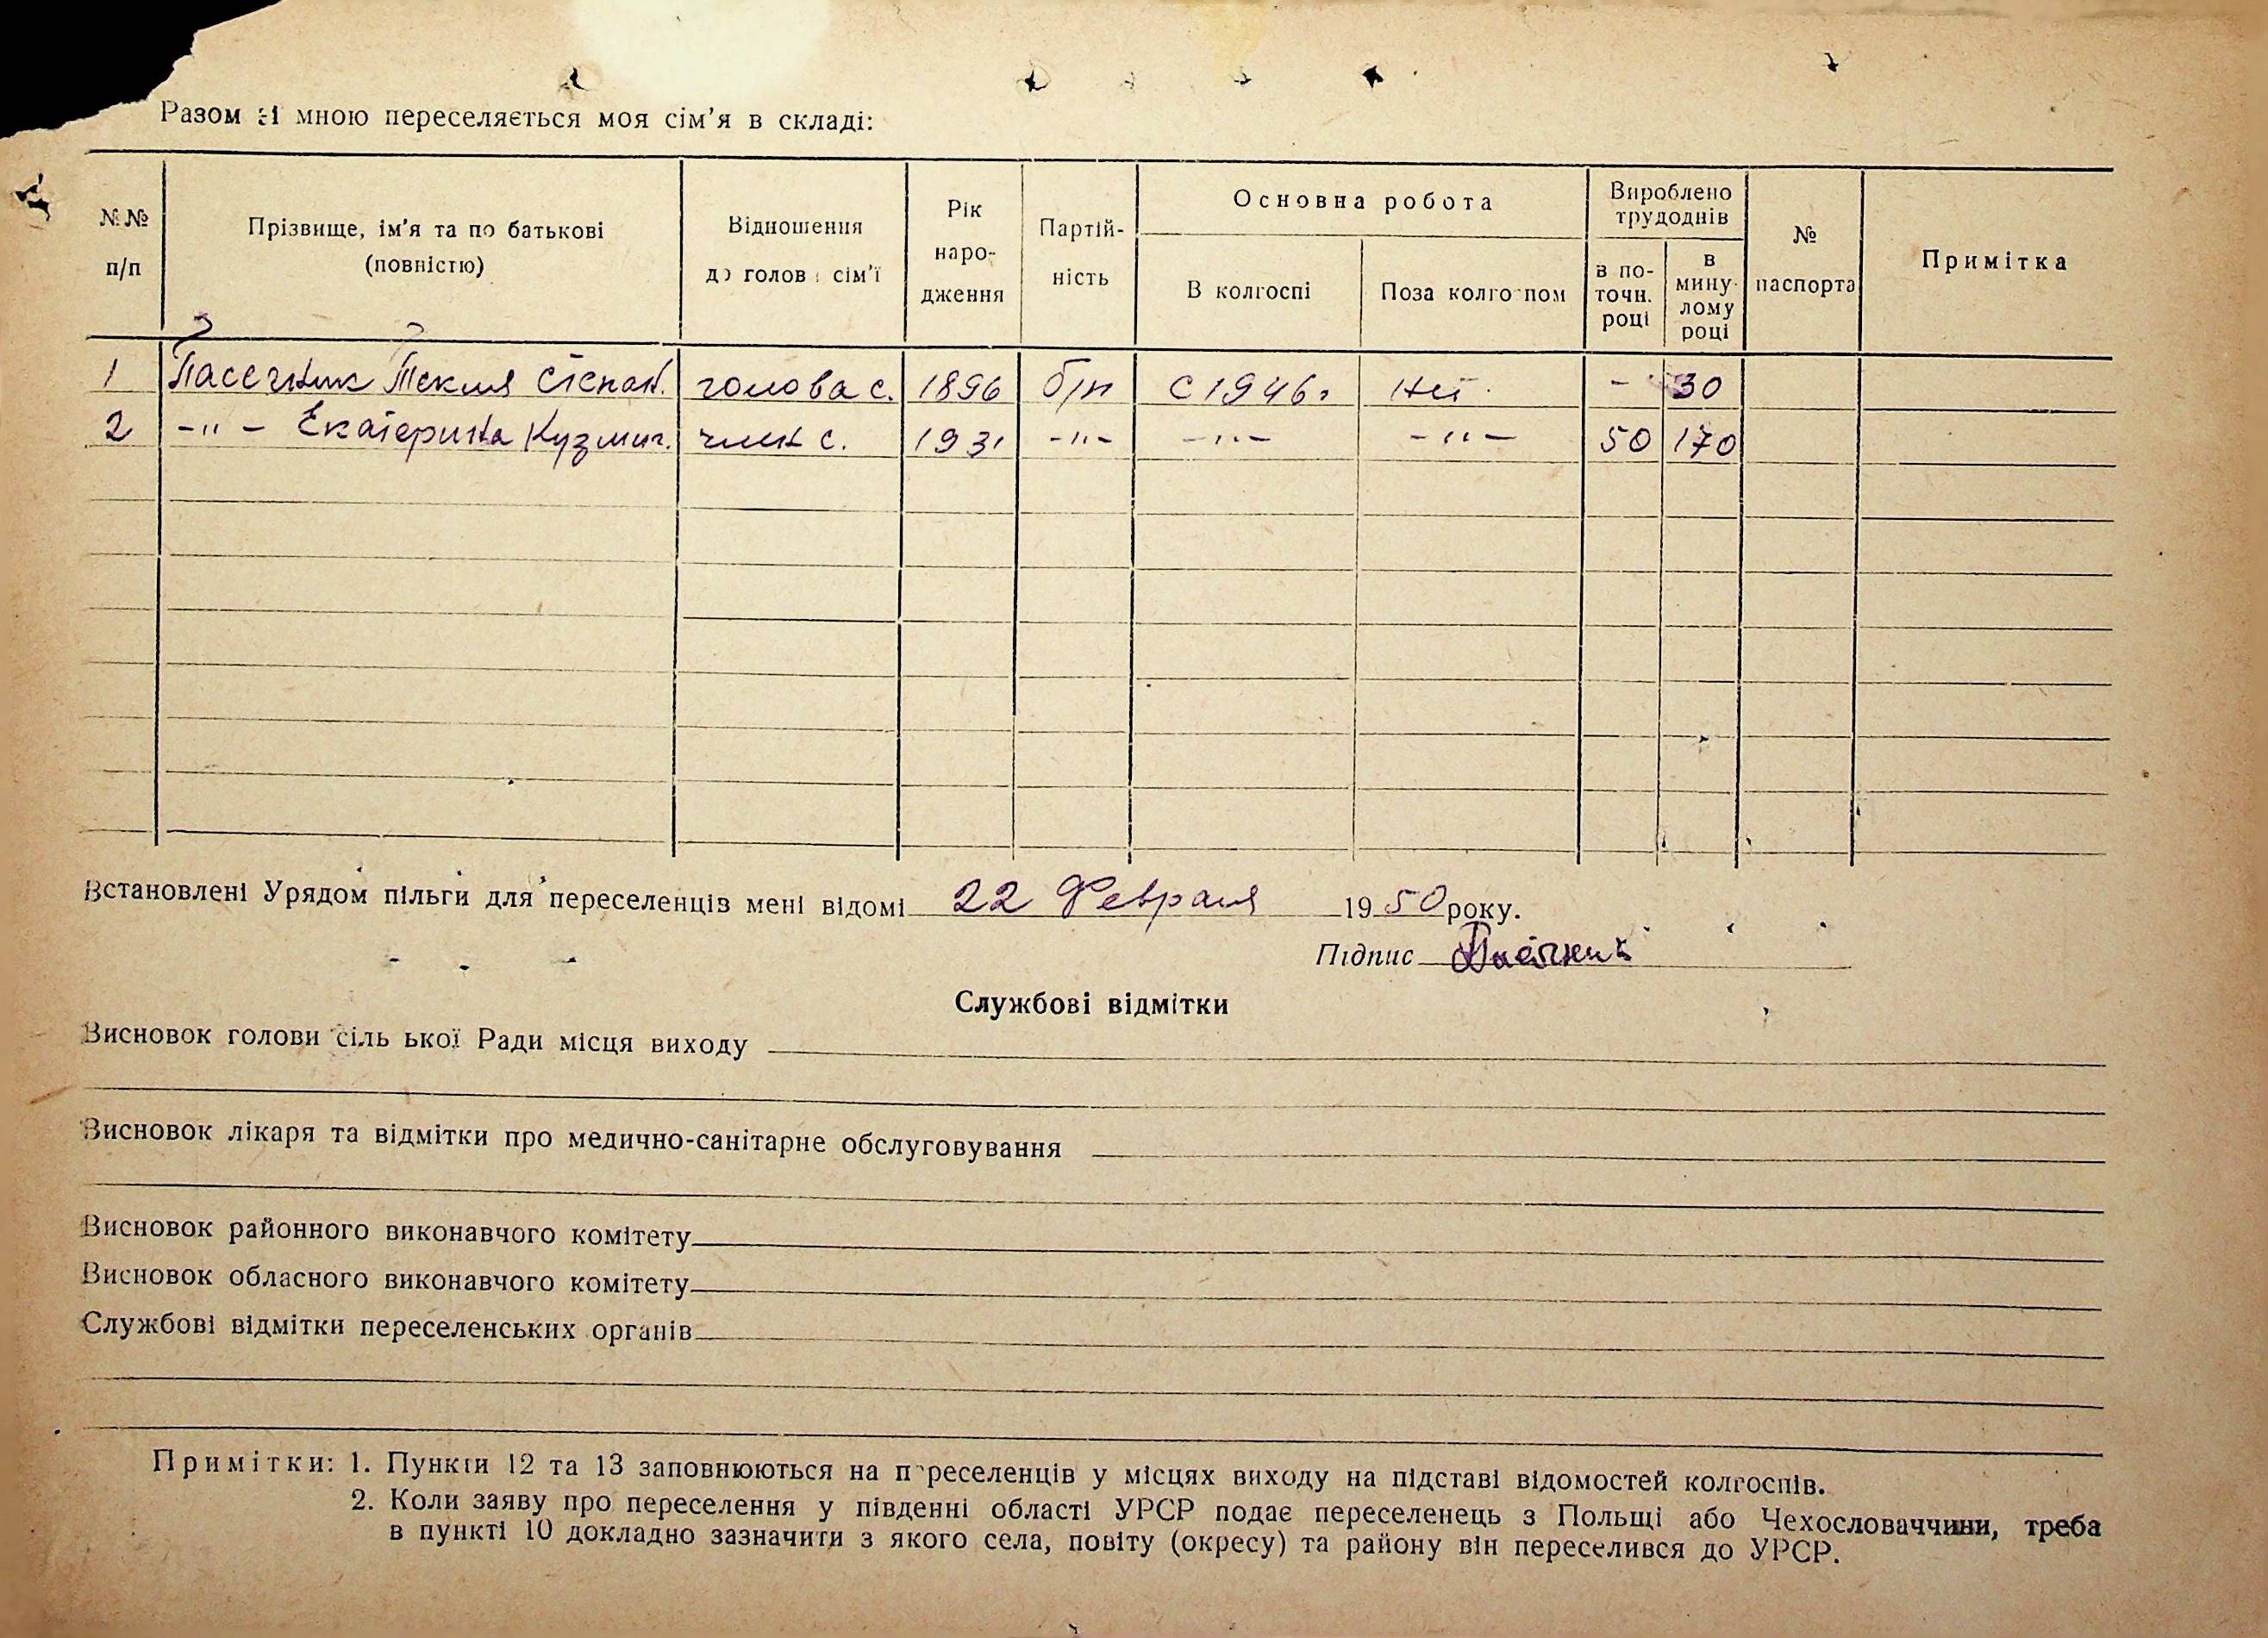 Разом зі мною переселяється моя сім'я в складі:
№№ п/п
Прізвище, ім'я та по батькові (повністю)
Відношення до голови сім'ї
Рік народження
Партійність
Основна робота
В колгоспі
Поза колгоспом
Вироблено трудоднів
в поточн. році
в минулому році
№ паспорта
Примітка
1 Пасечник Текля Степан. голова с. 1896 б/п с 1946г нет - 30
2 -"- Екатерина Кузмич. член с. 1931 -"- -"- -"- 50 170
Встановлені Урядом пільги для переселенців мені відомі 22 Февраля 1950 року.
Підпис Пасечник
Службові відмітки
Висновок голови сільської Ради місця виходу
Висновок лікаря та відмітки про медично-санітарне обслуговування
Висновок районного виконавчого комітету
Висновок обласного виконавчого комітету
Службові відмітки переселенських органів
Примітки: 1. Пункти 12 та 13 заповнюються на переселенців у місцях виходу на підставі відомостей колгоспів.
2. Коли заяву про переселення у південні області УРСР подає переселенець з Польщі або Чехословаччини, треба
в пункті 10 докладно зазначити з якого села, повіту (окресу) та району він переселився до УРСР.